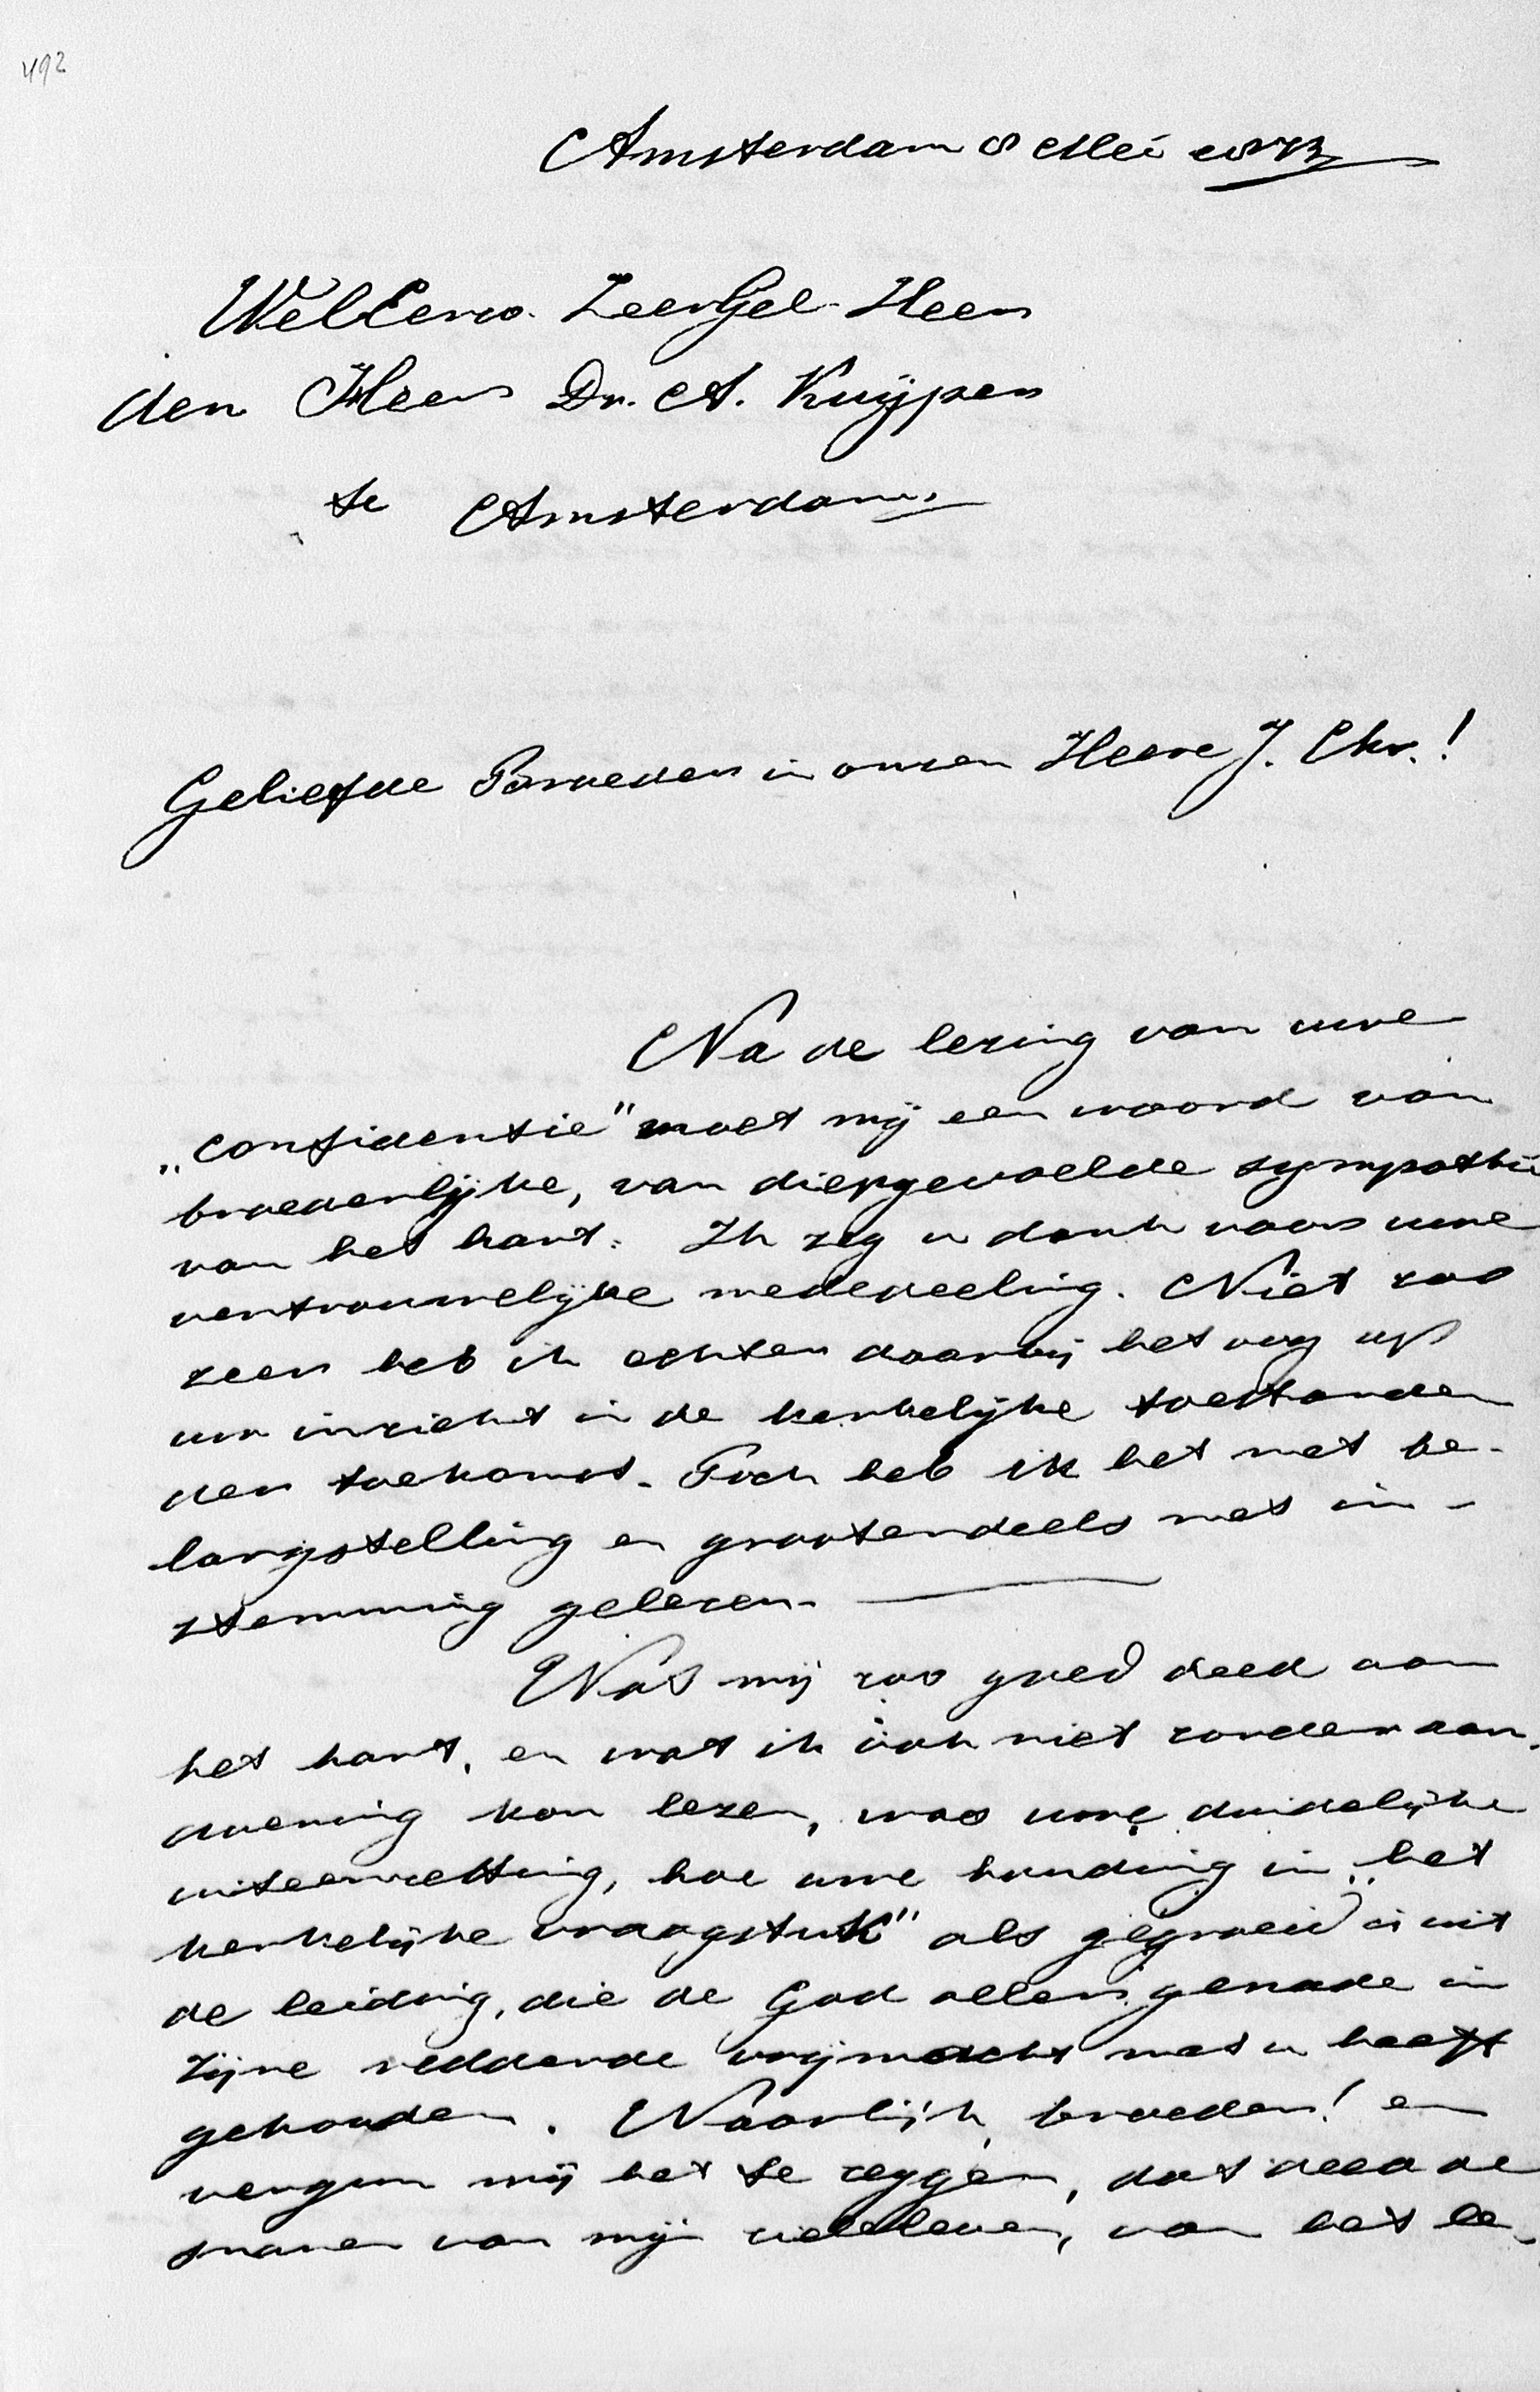 492
Amsterdam 8 Mei 1873
WelEerw. ZeerGel. Heer
den Heer Dr. A. Kuÿper
te Amsterdam.
Geliefde Broeder in onzen Heere J. Chr.!
Na de lezing van uwe
„confidentie" moet mij een woord van
broederlijke, van diepgevoelde sympathie
van het hart. Ik zeg u dank voor uwe
vertrouwelijke mededeeling. Niet zoo
zeer heb ik echter daarbij het oog op
uw inzicht in de kerkelijke toestanden
der toekomst. Toch heb ik het met be-
langstelling en grootendeels met in-
stemming gelezen. —
Wat mij zoo goed deed aan
het hart, en wat ik óók niet zonder aan-
doening kon lezen, was uwe duidelijke
uiteenzetting, hoe uwe houding in „het
kerkelijke vraagstuk" als gegroeid is uit
de leiding, die de God aller genade in
zijne reddende vrijmacht met u heeft
gehouden. Waarlijk, broeder! en
vergun mij het te zeggen, dat deed de
snaren van mijn zieleleven, van het le-